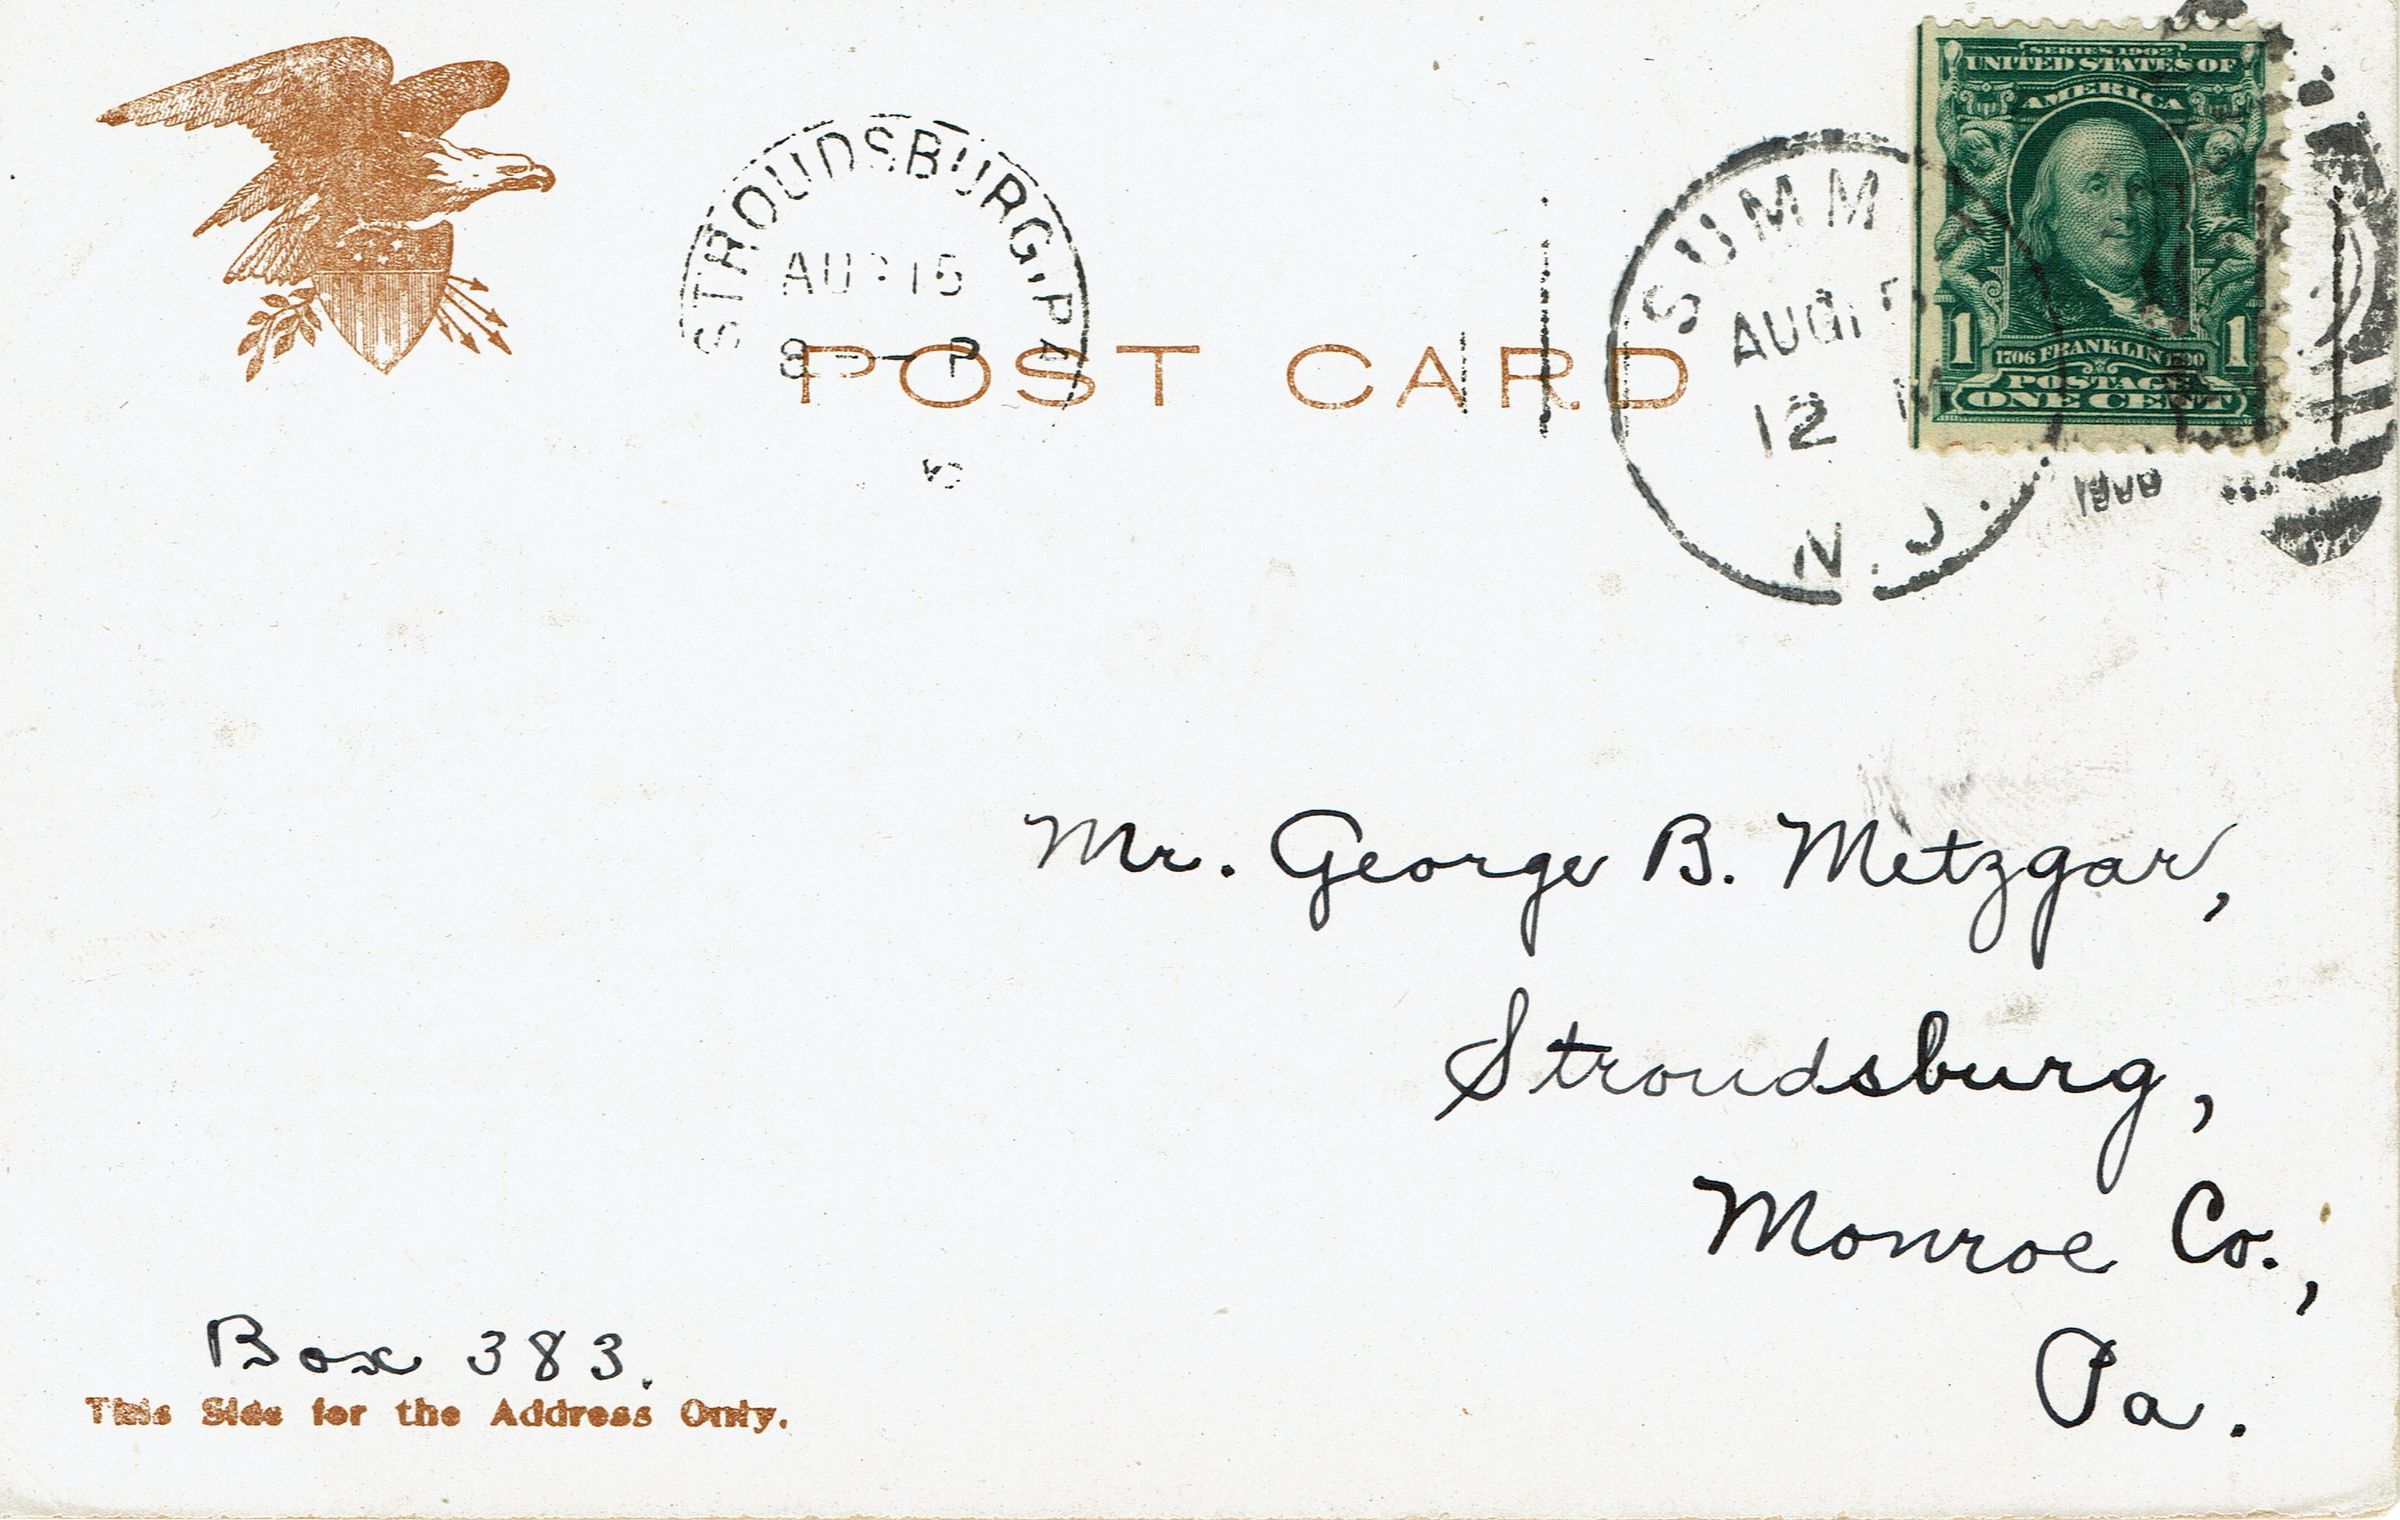 SERIES 1902
UNITED STATES OF
AMERICA
1 1706 FRANKLIN 1790 1
POSTAGE
ONE CENT
STROUDSBURG, PA.
AUG 15
8 - P
N.J.
12
POST CARD
Mr. George B. Metzgar,
Stroudsburg,
Monroe Co.,
Pa.
Box 383.
This Side for the Address Only.